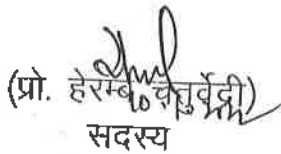 (प्रो. हेरम्ब चतुर्वेदी)
सदस्य